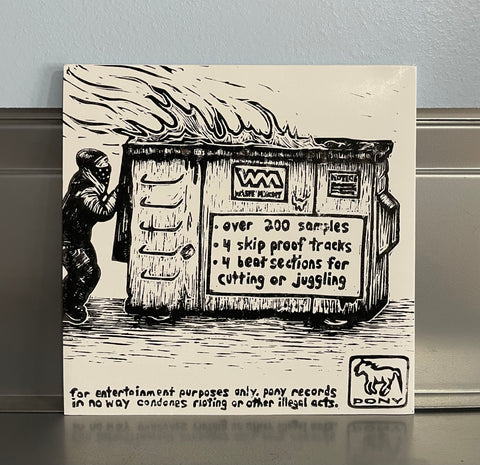 WM
WASTE MGMGMT
NOTICE
• over 200 samples
• 4 skip proof tracks
• 4 beat sections for
cutting or juggling
PONY
for entertainment purposes only. pony records
in no way condones rioting or other illegal acts.